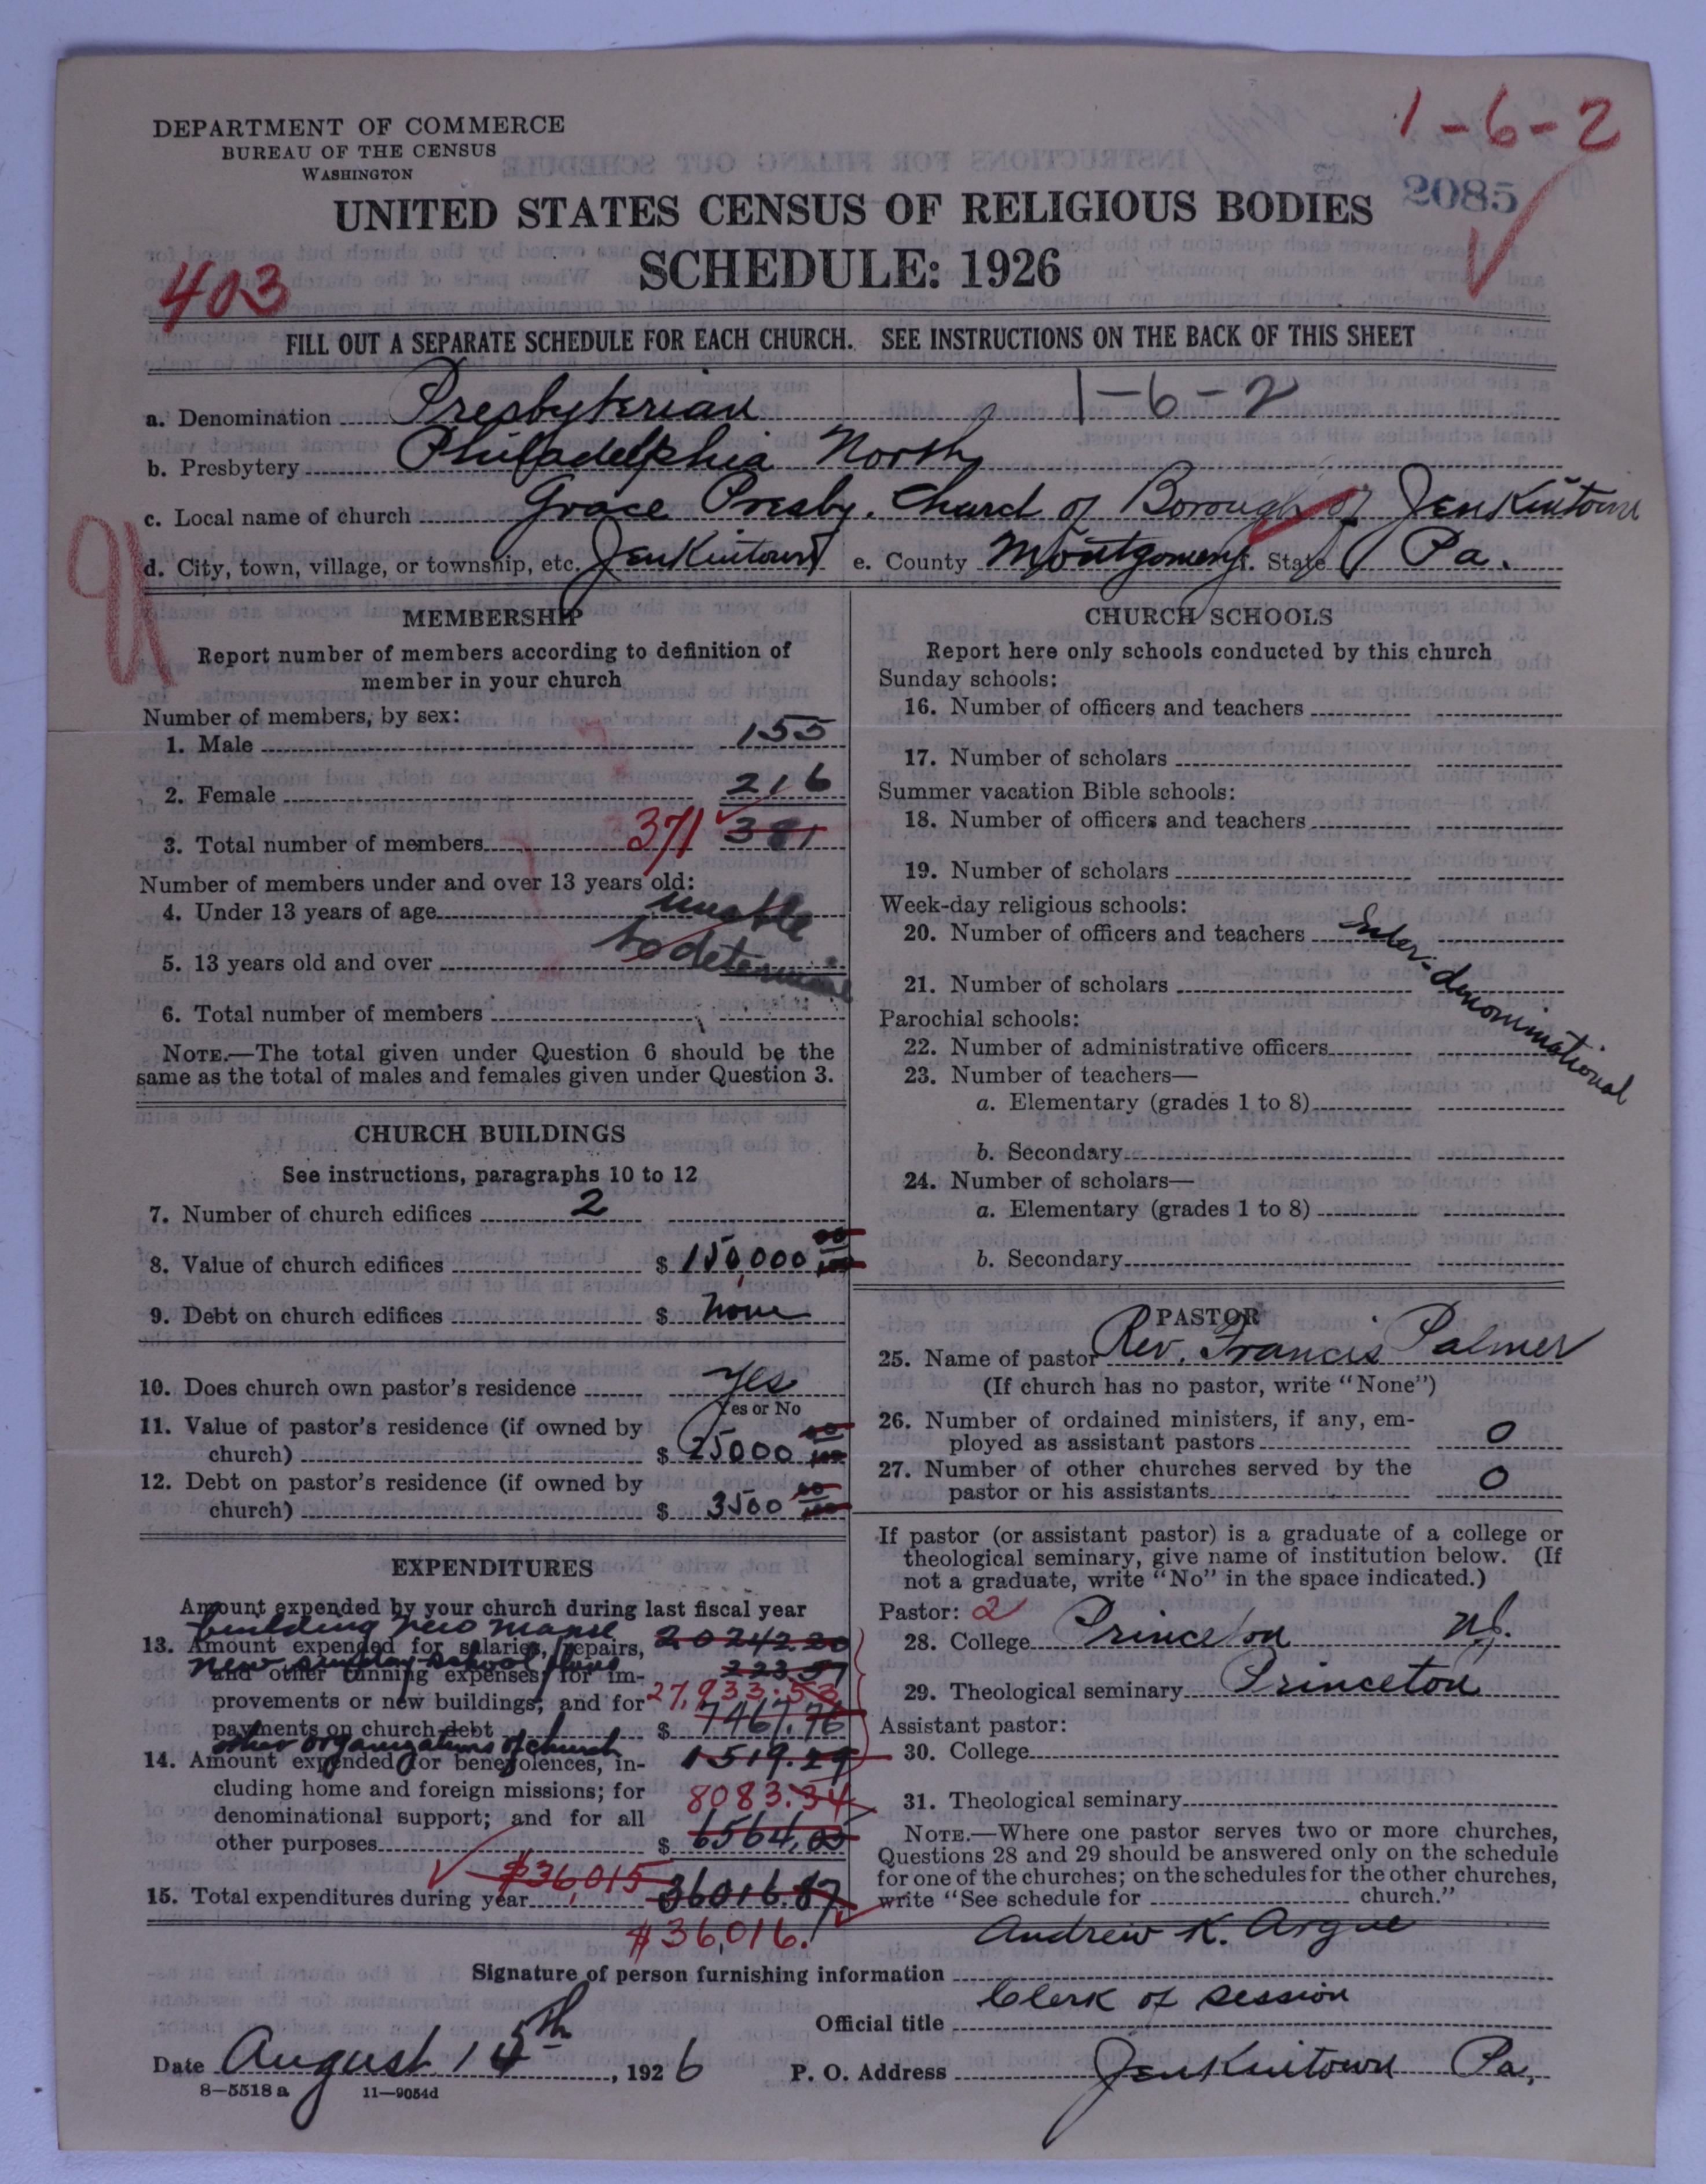 1-6-2
DEPARTMENT OF COMMERCE
BUREAU OF THE CENSUS
WASHINGTON
2085
UNITED STATES CENSUS OF RELIGIOUS BODIES
SCHEDULE: 1926
403
FILL OUT A SEPARATE SCHEDULE FOR EACH CHURCH. SEE INSTRUCTIONS ON THE BACK OF THIS SHEET
a. Denomination Presbyterian 1-6-2
b. Presbytery Philadelphia North
c. Local name of church Grace Presby. Church of Borough of Jenkintown
d. City, town, village, or township, etc. Jenkintown e. County Montgomery f. State Pa.
MEMBERSHIP
Report number of members according to definition of
member in your church
Number of members, by sex:
1. Male 155
2. Female 216
3. Total number of members 371 381
Number of members under and over 13 years old:
4. Under 13 years of age unable
5. 13 years old and over to determine
6. Total number of members
NOTE.—The total given under Question 6 should be the
same as the total of males and females given under Question 3.
CHURCH BUILDINGS
See instructions, paragraphs 10 to 12
7. Number of church edifices 2
8. Value of church edifices $ 150,000 00/100
9. Debt on church edifices $ None
10. Does church own pastor's residence Yes
Yes or No
11. Value of pastor's residence (if owned by
church) $ 25000 00/100
12. Debt on pastor's residence (if owned by
church) $ 3500 00/100
EXPENDITURES
Amount expended by your church during last fiscal year
building New Manse
13. Amount expended for salaries, repairs, 20242.20
new Sunday-school
and other running expenses; for im- 223.57
provements or new buildings; and for 27,933.53
payments on church debt $ 7467.76
other organizations of church
14. Amount expended for benevolences, in- 1519.29
cluding home and foreign missions; for 8083.34
denominational support; and for all
other purposes $ 6564.05
$36,015
15. Total expenditures during year 36016.87
$36,016.
CHURCH SCHOOLS
Report here only schools conducted by this church
Sunday schools:
16. Number of officers and teachers
17. Number of scholars
Summer vacation Bible schools:
18. Number of officers and teachers
19. Number of scholars
Week-day religious schools:
20. Number of officers and teachers Inter-denominational
21. Number of scholars
Parochial schools:
22. Number of administrative officers
23. Number of teachers—
a. Elementary (grades 1 to 8)
b. Secondary
24. Number of scholars—
a. Elementary (grades 1 to 8)
b. Secondary
PASTOR
25. Name of pastor Rev. Francis Palmer
(If church has no pastor, write "None")
26. Number of ordained ministers, if any, em-
ployed as assistant pastors 0
27. Number of other churches served by the
pastor or his assistants 0
If pastor (or assistant pastor) is a graduate of a college or
theological seminary, give name of institution below. (If
not a graduate, write "No" in the space indicated.)
Pastor: 2
28. College Princeton N.J.
29. Theological seminary Princeton
Assistant pastor:
30. College
31. Theological seminary
NOTE.—Where one pastor serves two or more churches,
Questions 28 and 29 should be answered only on the schedule
for one of the churches; on the schedules for the other churches,
write "See schedule for church."
Andrew K. Argue
Signature of person furnishing information
Clerk of Session
Official title
Date August 15th, 1926 P. O. Address Jenkintown Pa.
8—5518a 11—9054d